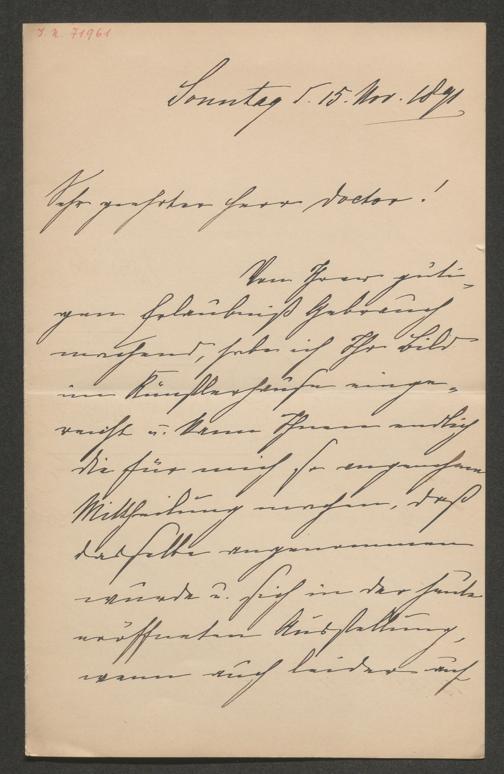 J. N. 71961
Sonntag d. 15. Nov. 1891
Sehr geehrter Herr Doctor!
Von Ihrer güti-
gen Erlaubniß Gebrauch
machend, habe ich Ihr Bild
im Künstlerhause einge-
reicht u. kann Ihnen endlich
die für mich so angenehme
Mittheilung machen, daß
dasselbe angenommen
wurde u. sich in der heute
eröffneten Ausstellung,
wenn auch leider auf